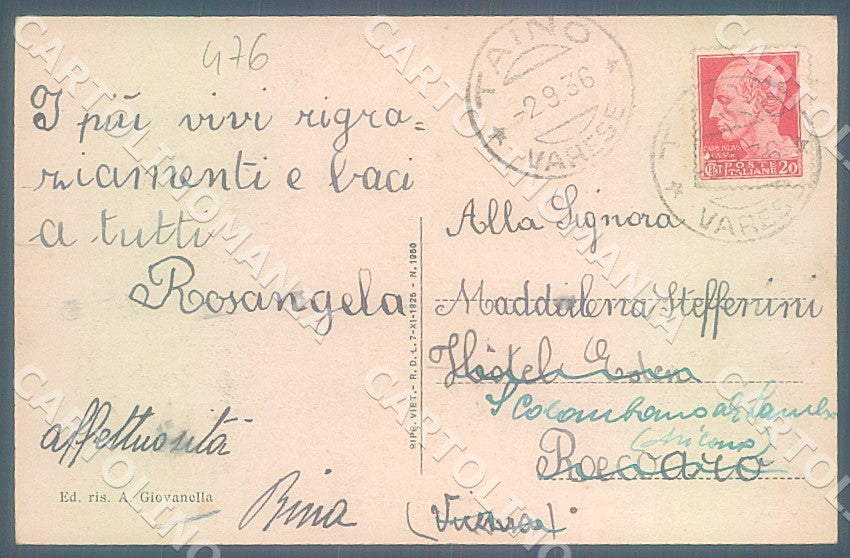 476
I più vivi rigra=
ziamenti e baci
a tutti
Rosangela
affettuosità
Bina
Ed. ris. A. Giovanella
RIPR. VIET. - R. D. L. 7-XI-1925 - N. 1950
TAINO
-2.9.36
VARESE
POSTE
ITALIANE 20
VARESE
Alla Signora
Maddalena Steffenini
Hôtel
S Colombano al Lambro
(Milano)
Recoaro
(Vicenza)
CARTOLINOMANIA